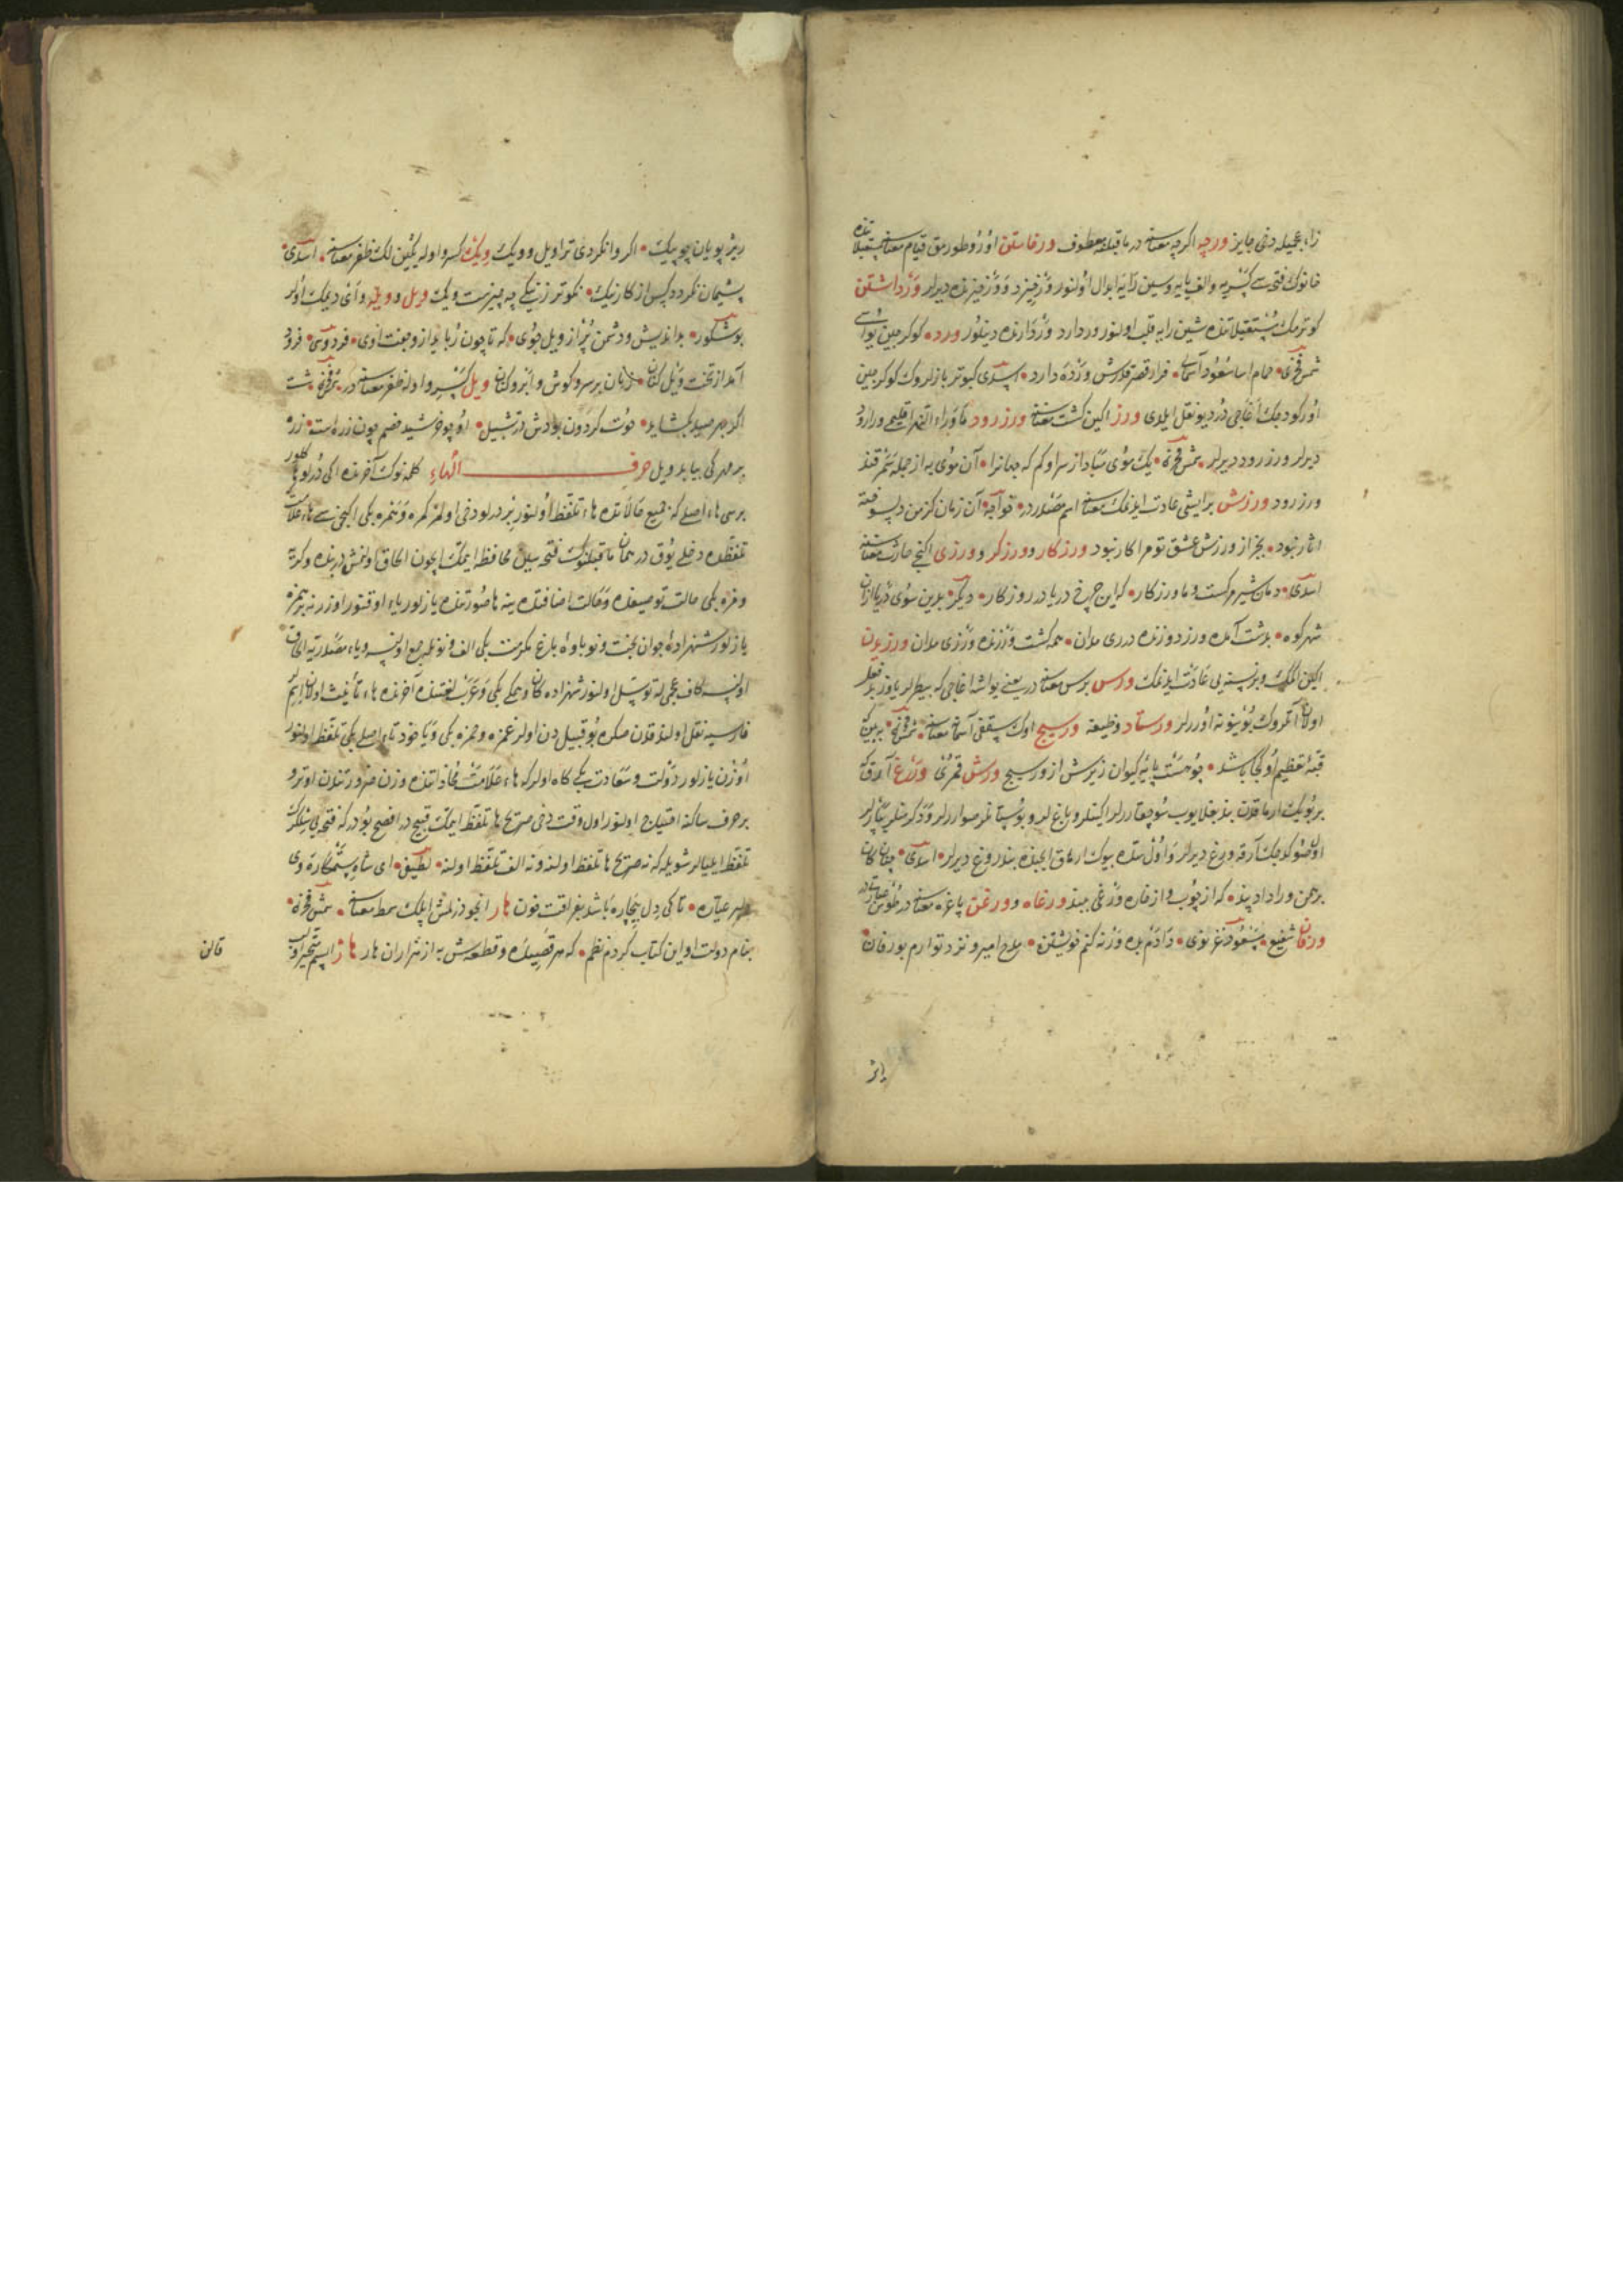 زاء عجمیله دخی جایز ورچه اکرچه معناسنه در ماقبلنه معطوف ورخاستن اوزو طورمق قیام معناسنه مستقبلاتنده
خانوک فتحه‌سی کسره‌یه والف یایه وسین زایه ابدال اولنور ورخیزد و ورخیزنده دیرلر ورداشتن
کوترمک مستقبلاتنده شین رایه قلب اولنور وردارد ورداونده دینلور ورد کوکرجین یواسی
شمس فخری حمام اسا مسعود آسمانی فراز قصر قدرش ورده دارد اسدی کبوتر بازلروک کوکرجین
اوزرکودجک آغاجی در دیو نقل ایلدی ورز اکین کشت معناسنه ورزرود ماوراء النهر اقلیمی ورارود
دیرلر ورزرود دیرلر شمس فخری یک موی مباد از سر او کم که جهانرا آن موی به از جمله سمرقند
ورزرود ورزش بر ایشی عادت ایدنمک معناسنه اسم مصدردر خواجه آن زمان کز من دلسوخته
اثار نبود بجز از ورزش عشق تو مرا کار نبود ورزکار وورزکر وورزی اکنجی حارث معناسنه
اسدی دمان شیر مرکست وما ورزکار کر این چرخ دریا در روزکار دیکر بدین سوی دریا از آن
شهر کوه بدشت آمده ورزد ورزنده دری مدان همه کشت ورزنده ورزی مدان ورزیدن
اکین اکمک وبر نسنه‌یی عادت ایدنمک ورس برس معناسنه در یعنی یواشه اغاجی که بیطرلر یاوز بدفعلر
اولان آتلروک بوینونه اوررلر ورستاد وظیفه ورسیج اوک سقفی آسمانه معناسنه شمس فخری ببین که
قبه تعظیم او کجا باشد چو هست پایه کیوان زیرش از ورسیج ورش قمری ورغ آرق
بر بویک ارماقدن بند بغلایوب سو چقاررلر ایکنلر وباغلر وبوستانلر صواررلر ودکرمنلر یتارلر
اول صو کلجک آرقه ورغ دیرلر واول مقدمه بیوک ارماق ایچنده بنده ورغ دیرلر اسدی چنان کان
برهمن ورا داد پند که از چوب و از خاره ورغی ببند ورغاه وورغن پاغره معناسنه در
ورفان شفیع مسعود غزنوی دادم بده ورنه کنم خویشتن مدح امیر و نزد تو ارم بورفان
اثر
ریز پویان چو پیک اکر وانکردی ترا ویل وویک ویک کسرواوله یکین لک ظفر معناسنه اسدی
پشیمان نکردد کس از کار نیک نکوتر ز نیکی چه چیزست ویک ویل وویله وآی دیمک اولر
بوشکور بد اندیش ودشمن پر از ویل جوی که تا چون رباید از وجفت اوی فردوسی فرود
آمد از تخت ویل کنان زنان بر سر وکوش وابرو کنان ویل کسرواوله ظفر معناسنه در فخری شست
اکر بهر صید بکشاید حوت کردون بوادش در تشبیل او چو خرشید وخصم چون زره است زره
بر مهر کی بیابد ویل حرف الهاء کلمه‌نوک آخرنده ایکی درلو ها کلور
برسی هاء اصلی که جمیع حالاتده هاء تلفظ اولنور بزدرلو دخی اولمز کره وفره بکی ایکنجیسی هاء علامت
تلفظده دخلی یوقدر همان ماقبلنوک فتحه‌سین محافظه ایتمک ایچون الحاق اولنمش در بنده وکرده
وفره بکی حالت توصیفده وحالت اضافتده ینه ها صورتنده یازلور یاء اوقنور اوزرینه بر همزه
یازلور شهزاده جوان بخت ونوباوه باغ مکرمت بکی الف ونونله جمع اولنسه ویاء مصدریه الحاق
اولنسه کاف عجمی له توسل اولنور شهزاده کان وبندکی بکی وعرب لغتنده آخرنده هاء تأنیث اولان اسم
فارسیه نقل اولندقدن صکره بو قبیلدن اولر غمزه وحمزه بکی ویاخود تاء اصلی بکی تلفظ اولنور
اوزن یازلور دولت وسعادت بکی کاه اولور که هاء علامت محاذاتنده وزن ضرورتندن اوترو
بر حرف ساکنه احتیاج اولنور اول وقت دخی صریح ها تلفظ ایتمک قبیح در افصح بودر که فتحه‌یی
تلفظ ایلیالر شویله که نه صریح ها تلفظ اولنه ونه الف تلفظ اولنه لطیفی ای شاه ستمکاره وی
دلبر عیاره تا کی دل بیچاره باشد بغم اقت خون هار انجو دزلمش ایپلک سمط معناسنه شمس فخری
بنام دولت او این کتاب کردم نظم که هر قصیده وقطعه‌ش به از هزاران هار هاژ اپسم متحیر اولب
قالن